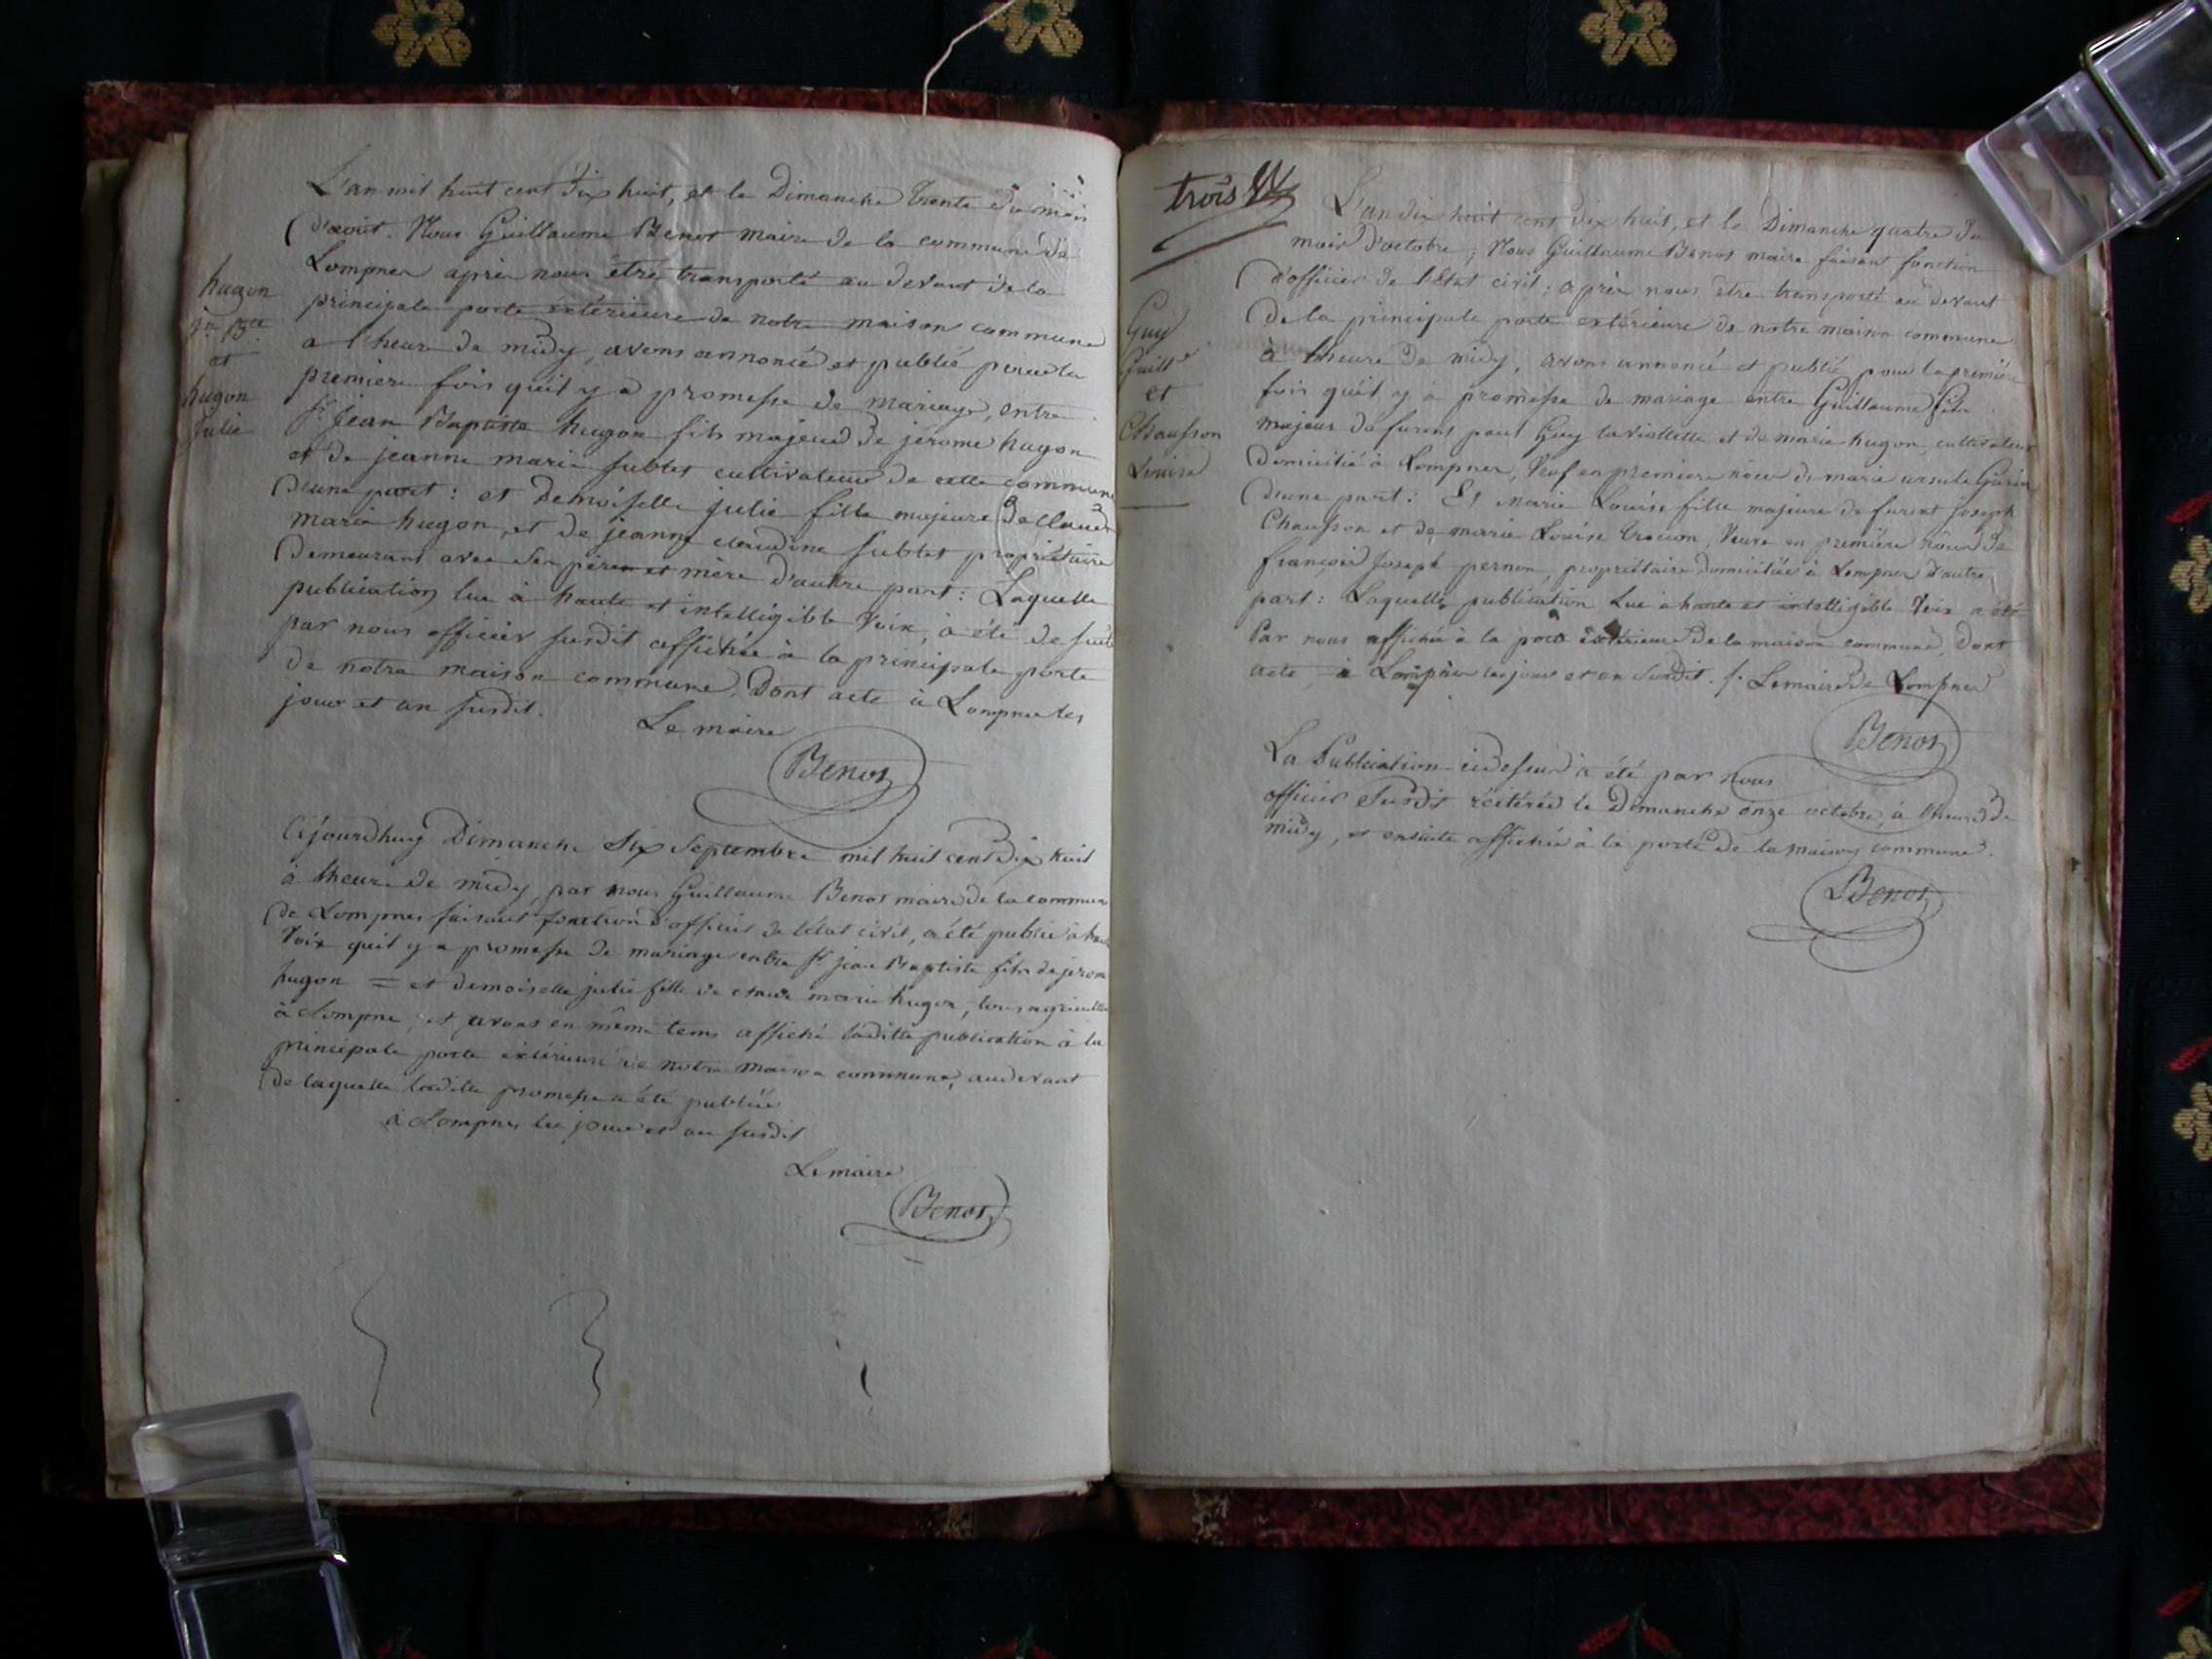 L'an mil huit cent dix huit, et le Dimanche trente du mois
d'aout. Nous Guillaume Benot maire de la commune de
Lompnes après nous être transporté au devant de la
principale porte extérieure de notre maison commune
a l'heure de midy, avons annoncé et publié pour la
premiere fois qu'il y a promesse de mariage, entre
Sr. Jean Baptiste hugon fils majeur de jérome hugon
et de jeanne marie sublet cultivateur de cette commune
d'une part : et Demoiselle julie fille majeure de Claude
marie hugon, et de jeanne claudine sublet propriétaire
Demeurant avec ses père et mère d'autre part : Laquelle
publication lue à haute et intelligible Voix, à été de suite
par nous officier susdit affichée à la principale porte
de notre maison commune, Dont acte à Lompnes les
jour et an susdit.
Le maire
Benot
hugon
jn. Bte.
et
hugon
julie
Cejourdhuy Dimanche Six Septembre mil huit cent dix huit
à l'heure de midy, par nous Guillaume Benot maire de la commune
de Lompnes faisant fonction d'officier de l'état civil, a été publié à haute
Voix quil y a promesse de mariage entre Sr. jean Baptiste fils de jerome
hugon = et demoiselle julie fille de claude marie hugon, tous
à Lompne, et avons en même tems affiché ladite publication à la
principale porte extérieure de notre maison commune, au devant
de laquelle ladite promesse a été publiée
à Lompnes les jour et an susdit
Le maire
Benot
trois
L'an dix huit cent dix huit, et le Dimanche quatre du
mois d'octobre ; Nous Guillaume Benot maire faisant fonction
d'officier de l'Etat civil ; après nous être transporté au devant
de la principale porte extérieure de notre maison commune
à l'heure de midy, avons annoncé et publié pour la première
fois qu'il y à promesse de mariage entre Guillaume fils
majeur de furent paul Guy laviollette et de marie hugon, cultivateur
domicilié à Lompnes, Veuf en premiere nôce de marie ursule
d'une part : Et Marie Louise fille majeure de furent joseph
Chausson et de marie Louise trocion, Veuve en première nôce de
françois Joseph pernon, propriétaire domiciliée à Lompnes d'autre
part : Laquelle publication Lue à haute et intelligible Voix a été
Par nous affichée à la porte extérieure de la maison commune, Dont
acte, à Lompnes les jour et an susdit. /. Le maire de Lompnes
Benot
Guy
Guille
et
Chausson
Louise
La Publication cidessus à été par nous
officier susdit réitérée le Dimanche onze octobre, à l'heure de
midy, et ensuite affichée à la porte de la maison commune.
Benot